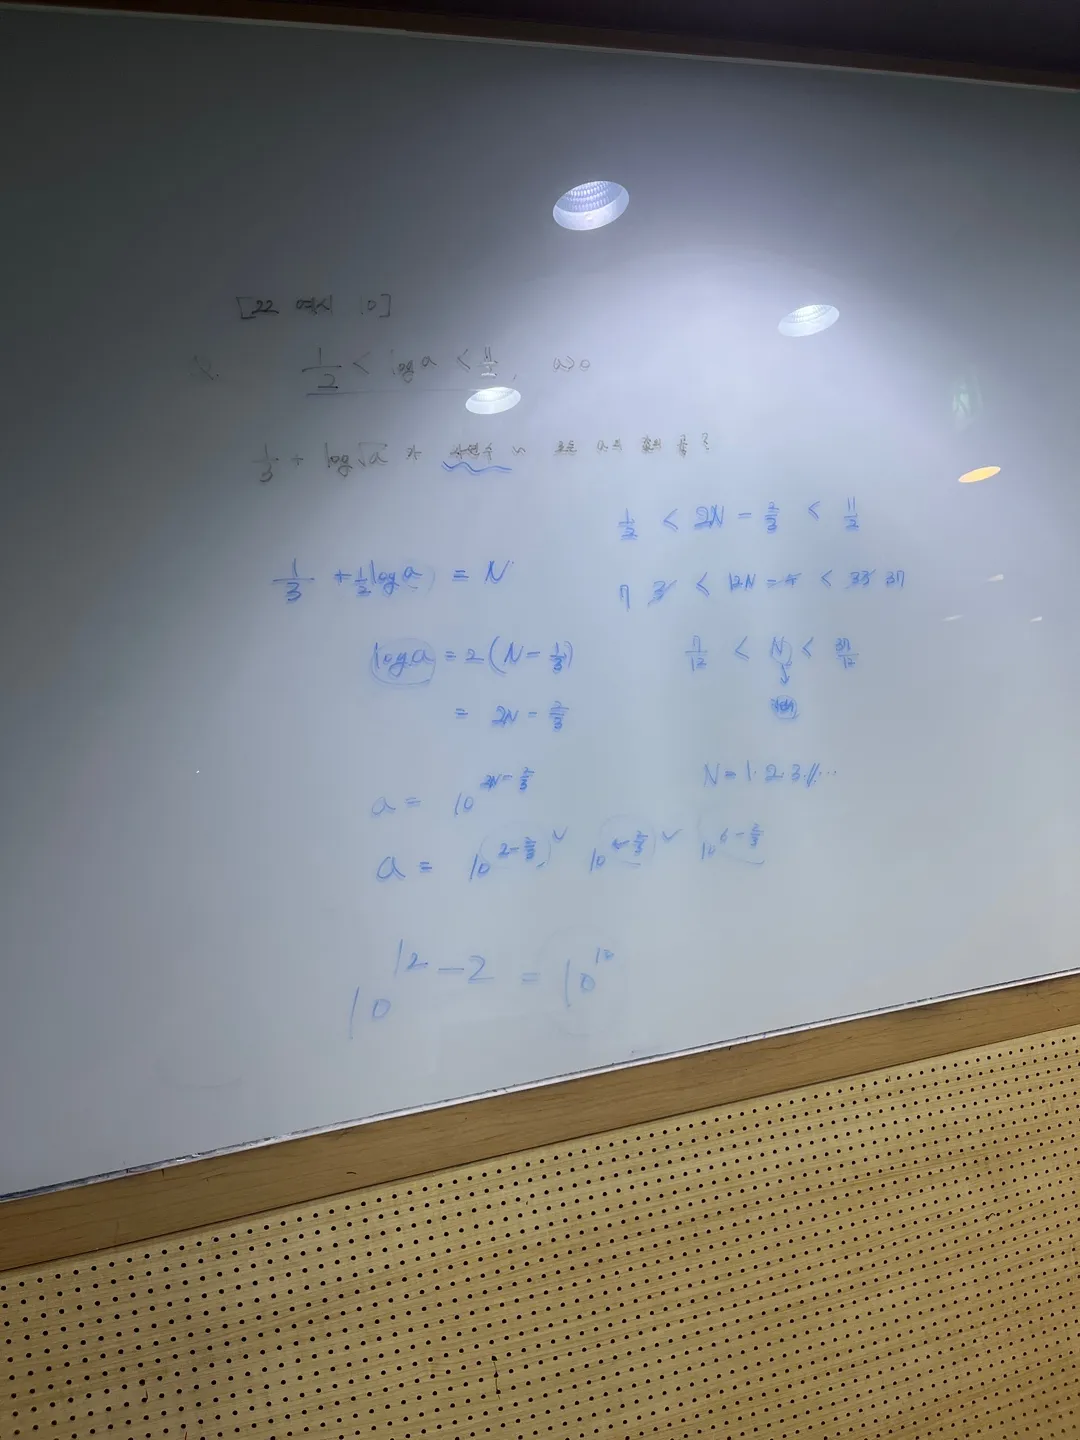 [22 예시 10]
Q. 1/2 < log a < 11/2, a>0
1/3 + log√a 가 자연수 ~ 모든 a의 값의 곱?
1/3 + 1/2 log a = N
log a = 2(N - 1/3)
= 2N - 2/3
a = 10^(2N - 2/3)
a = 10^(2 - 2/3) ✓ 10^(4 - 2/3) ✓ 10^(6 - 2/3)
10^(12 - 2) = 10^10
1/2 < 2N - 2/3 < 11/2
7 3 < 12N - 4 < 33 37
7/12 < N < 37/12
N = 1. 2. 3. 4...